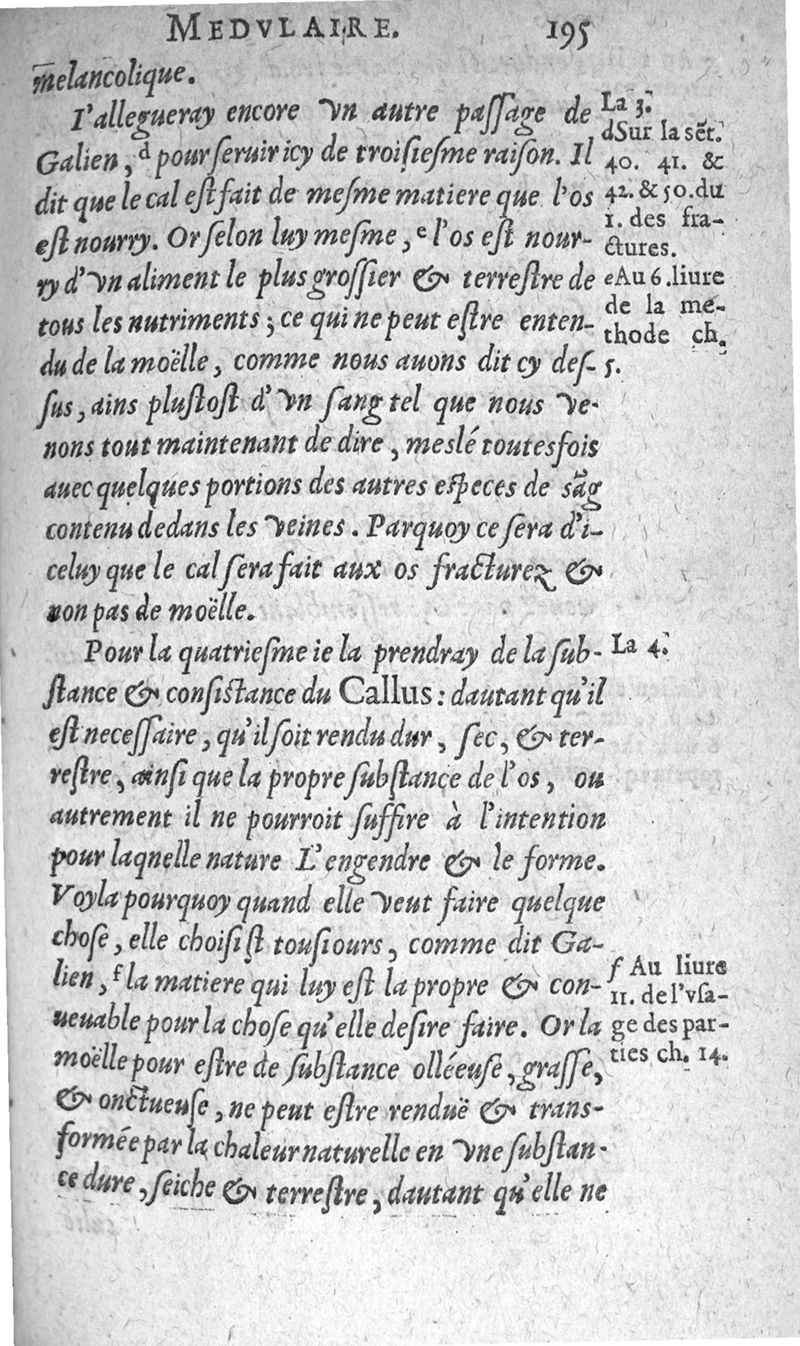 MEDVLAIRE. 195
melancolique.
I'allegueray encore vn autre paſſage de
Galien, d pour ſeruir icy de troiſieſme raiſon. Il
dit que le cal eſt fait de meſme matiere que l'os
eſt nourry. Or ſelon luy meſme, e l'os eſt nour-
ry d'vn aliment le plus groſſier & terreſtre de
tous les nutriments; ce qui ne peut eſtre enten-
du de la moëlle, comme nous auons dit cy deſ-
ſus, ains pluſtoſt d'vn ſang tel que nous ve-
nons tout maintenant de dire, meslé toutesfois
auec quelques portions des autres especes de sãg
contenu dedans les veines. Parquoy ce ſera d'i-
celuy que le cal ſera fait aux os fracturez &
non pas de moëlle.
Pour la quatrieſme ie la prendray de la ſub-
ſtance & conſiſtance du Callus: dautant qu'il
eſt neceſſaire, qu'il ſoit rendu dur, ſec, & ter-
reſtre, ainſi que la propre ſubſtance de l'os, ou
autrement il ne pourroit ſuffire à l'intention
pour laqnelle nature L'engendre & le forme.
Voyla pourquoy quand elle veut faire quelque
choſe, elle choiſiſt touſiours, comme dit Ga-
lien, f la matiere qui luy eſt la propre & con-
ueuable pour la choſe qu'elle deſire faire. Or la
moëlle pour eſtre de ſubſtance olléeuſe, graſſe,
& onctueuſe, ne peut eſtre renduë & trans-
formée par la chaleur naturelle en vne ſubſtan-
ce dure, ſeiche & terreſtre, dautant qu'elle ne
La 3.
d Sur la sẽt.
40. 41. &
42. & 50. du
1. des fra-
ctures.
e Au 6. liure
de la me-
thode ch.
5.
La 4.
f Au liure
11. de l'vſa-
ge des par-
ties ch. 14.